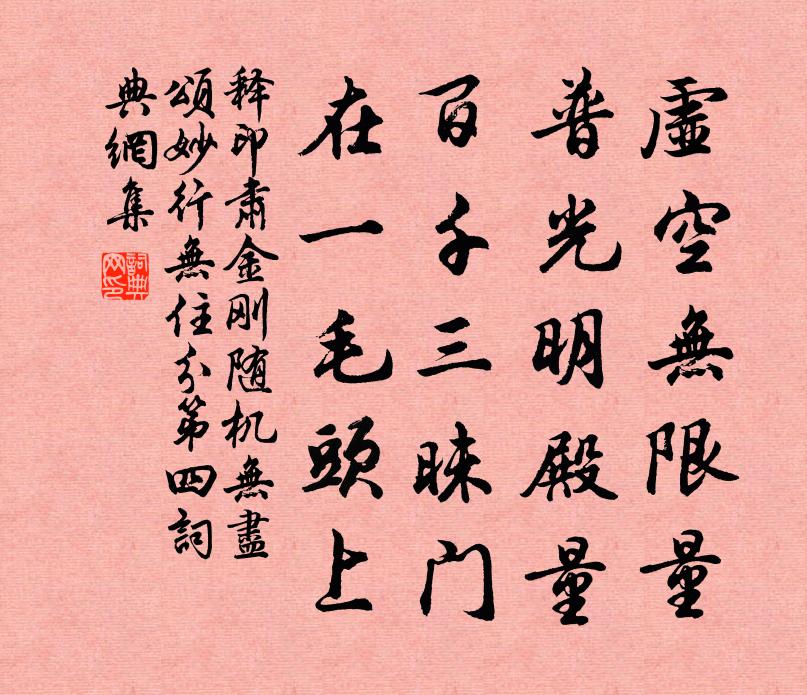 虛空無限量
普光明殿量
百千三昧门
在一毛頭上
释印肅金刚随机無盡
頌妙行無住分第四詞
典網集
詞典网印